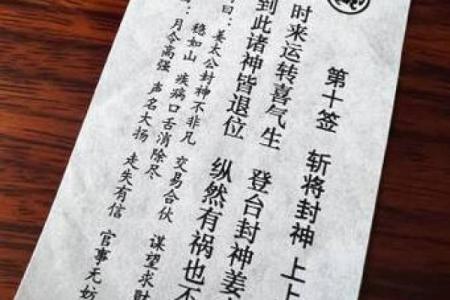 第十签 斩将封神 上上
时来运转喜气生 登台封神姜
到此诸神皆退位 纵然有祸也不
曰：姜太公封神不非凡 谋望求财
稳如山 疾病口舌消除尽 交易合伙
：月令高强 声名大扬 走失有信 官事无妨